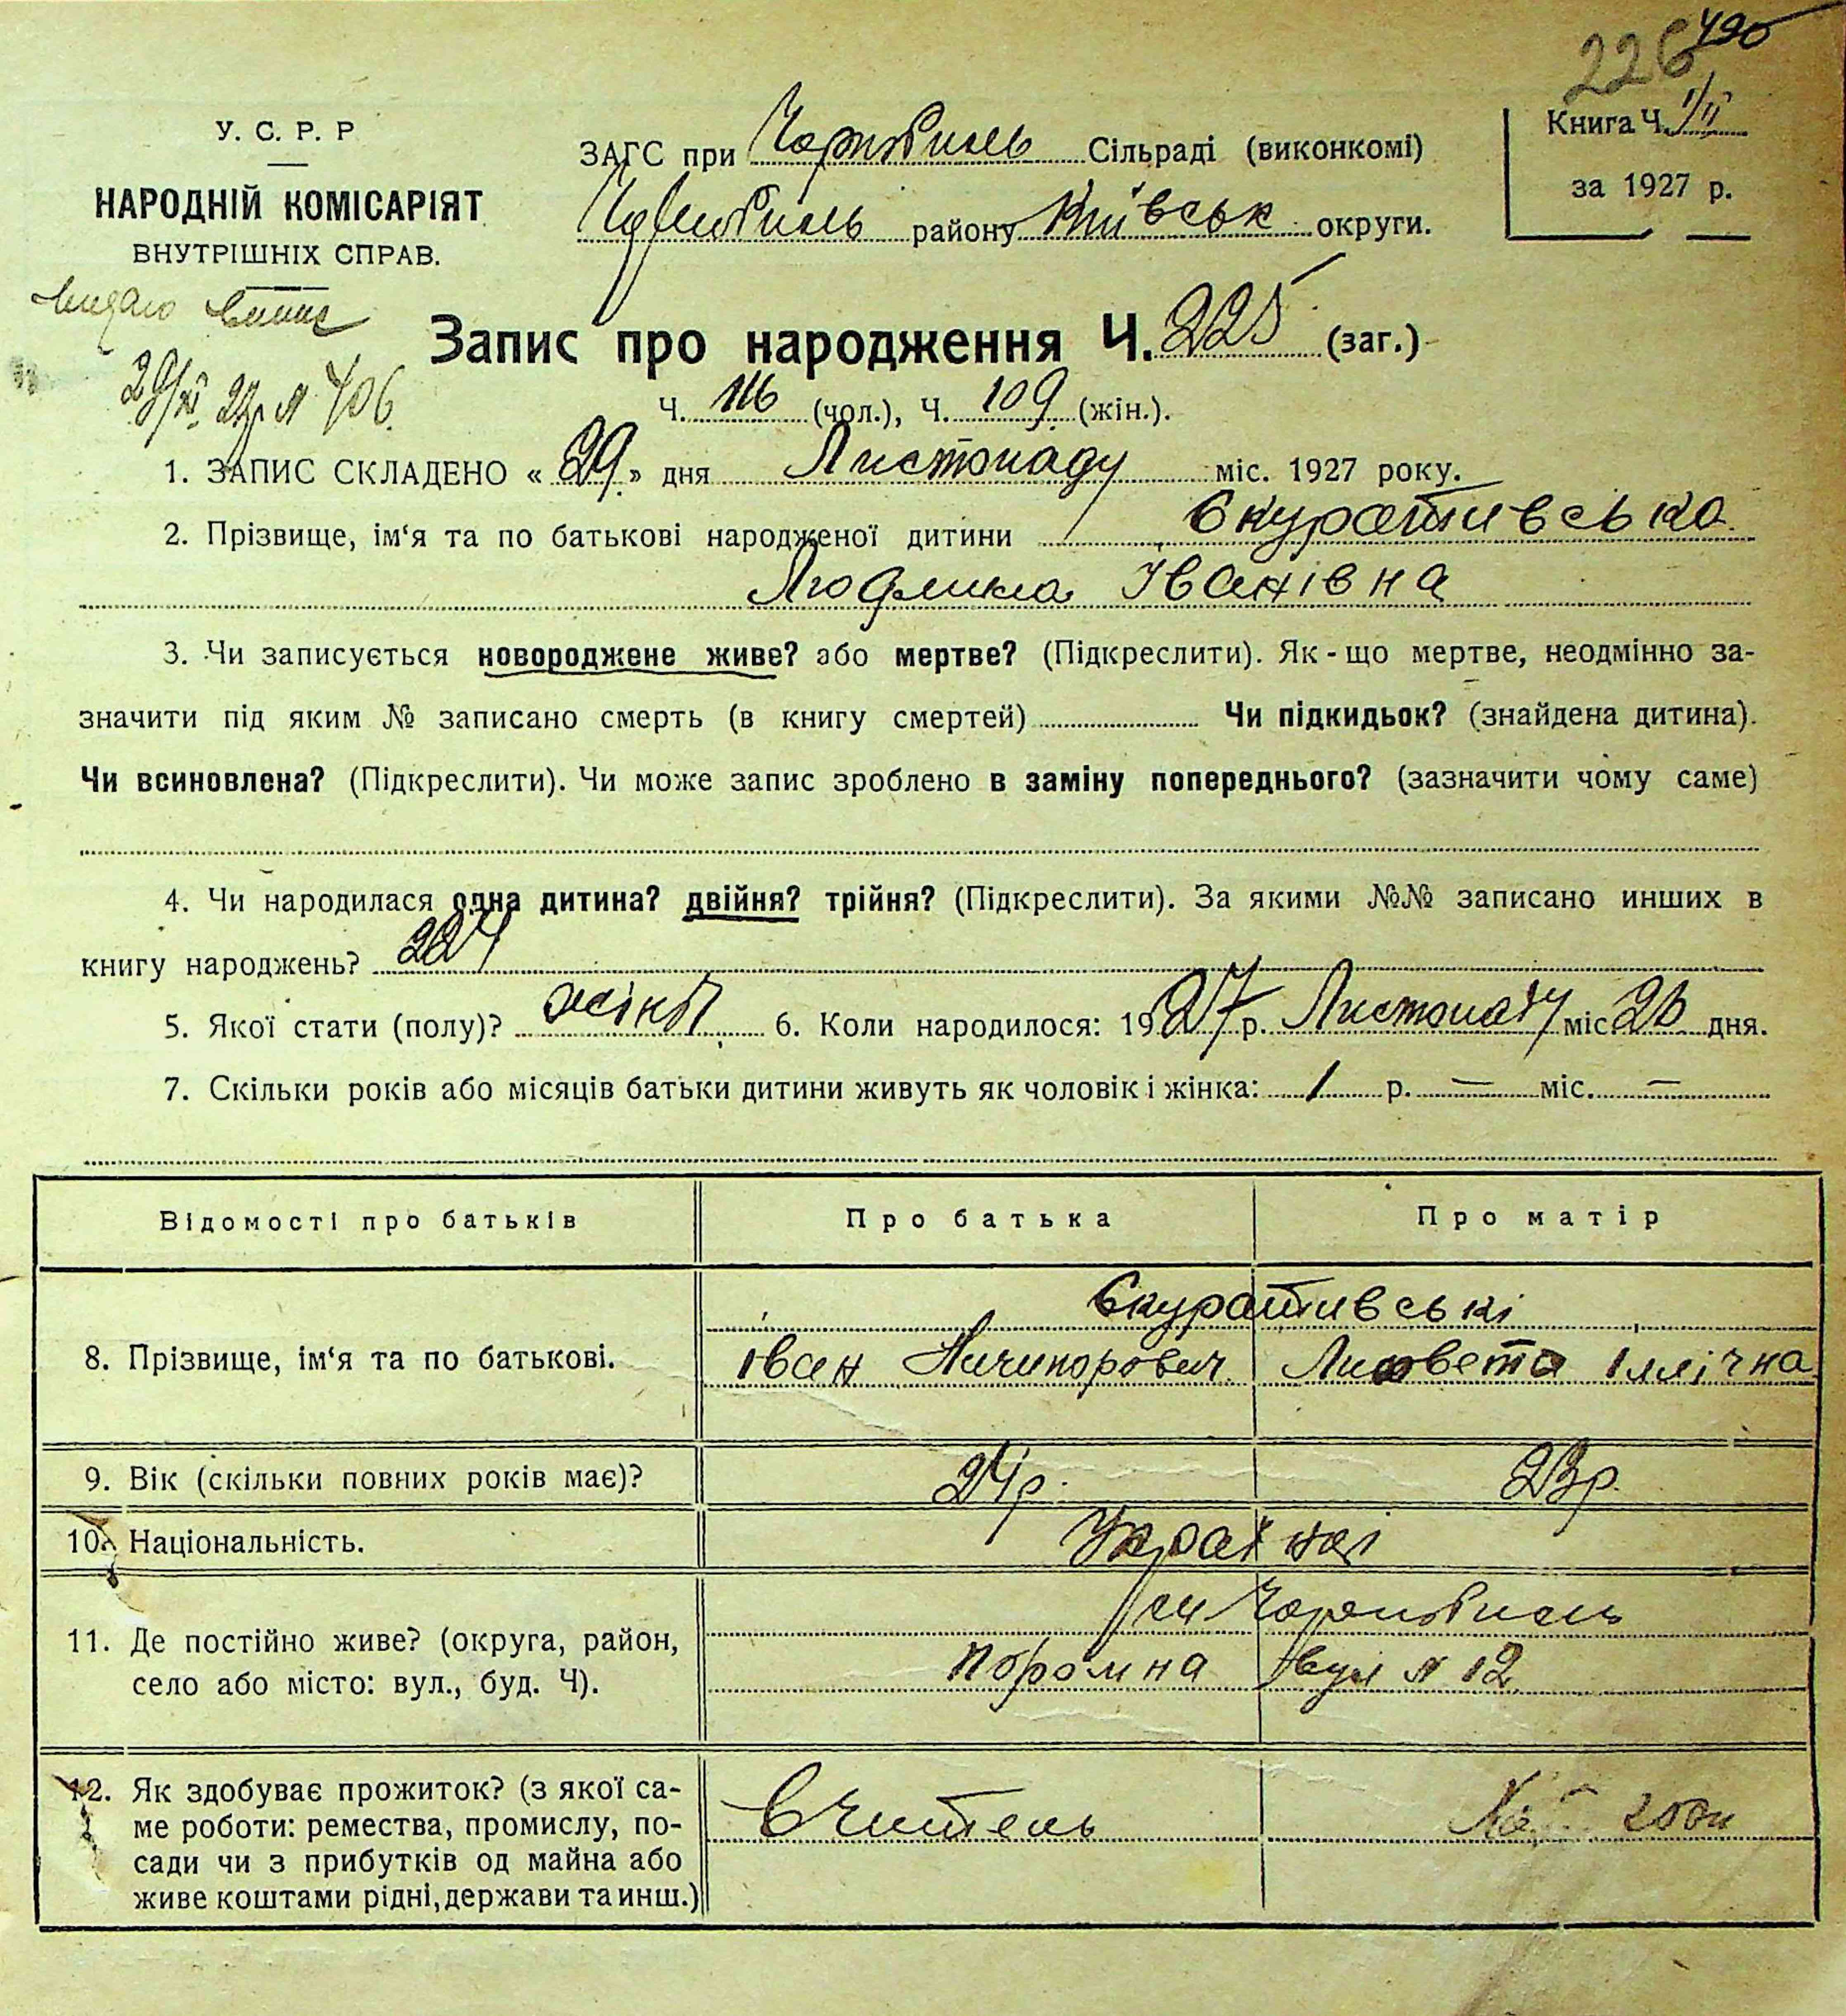 226 490
У. С. Р. Р
НАРОДНІЙ КОМІСАРІЯТ
ВНУТРІШНІХ СПРАВ.
ЗАГС при Чорнобиль Сільраді (виконкомі)
Чорнобиль району Київськ округи.
Книга Ч. 1/II
за 1927 р.
видаю випис
29/XI 27р N 406.
Запис про народження Ч. 225 (заг.)
Ч. 116 (чол.), Ч. 109 (жін.).
1. ЗАПИС СКЛАДЕНО « 29 » дня Листопаду міс. 1927 року.
2. Прізвище, ім‘я та по батькові народженої дитини Скуратівська
Людмила Іванівна
3. Чи записується новороджене живе? або мертве? (Підкреслити). Як-що мертве, неодмінно за-
значити під яким № записано смерть (в книгу смертей) Чи підкидьок? (знайдена дитина).
Чи всиновлена? (Підкреслити). Чи може запис зроблено в заміну попереднього? (зазначити чому саме)
4. Чи народилася одна дитина? двійня? трійня? (Підкреслити). За якими №№ записано инших в
книгу народжень? 224
5. Якої стати (полу)? жіноч 6. Коли народилося: 1927 р. Листопаду міс 26 дня.
7. Скільки років або місяців батьки дитини живуть як чоловік і жінка: 1 р. — міс. —
Відомості про батьків Про батька Про матір
Скуратівські
8. Прізвище, ім‘я та по батькові. Іван Ничипорович Лизовета Іллічна
9. Вік (скільки повних років має)? 24р. 23р.
10. Національність. Україн ці
11. Де постійно живе? (округа, район,
село або місто: вул., буд. Ч).
м Чорнобиль
Поромна вул N 12
12. Як здобуває прожиток? (з якої са-
ме роботи: ремества, промислу, по-
сади чи з прибутків од майна або
живе коштами рідні, держави та инш.)
Вчитель